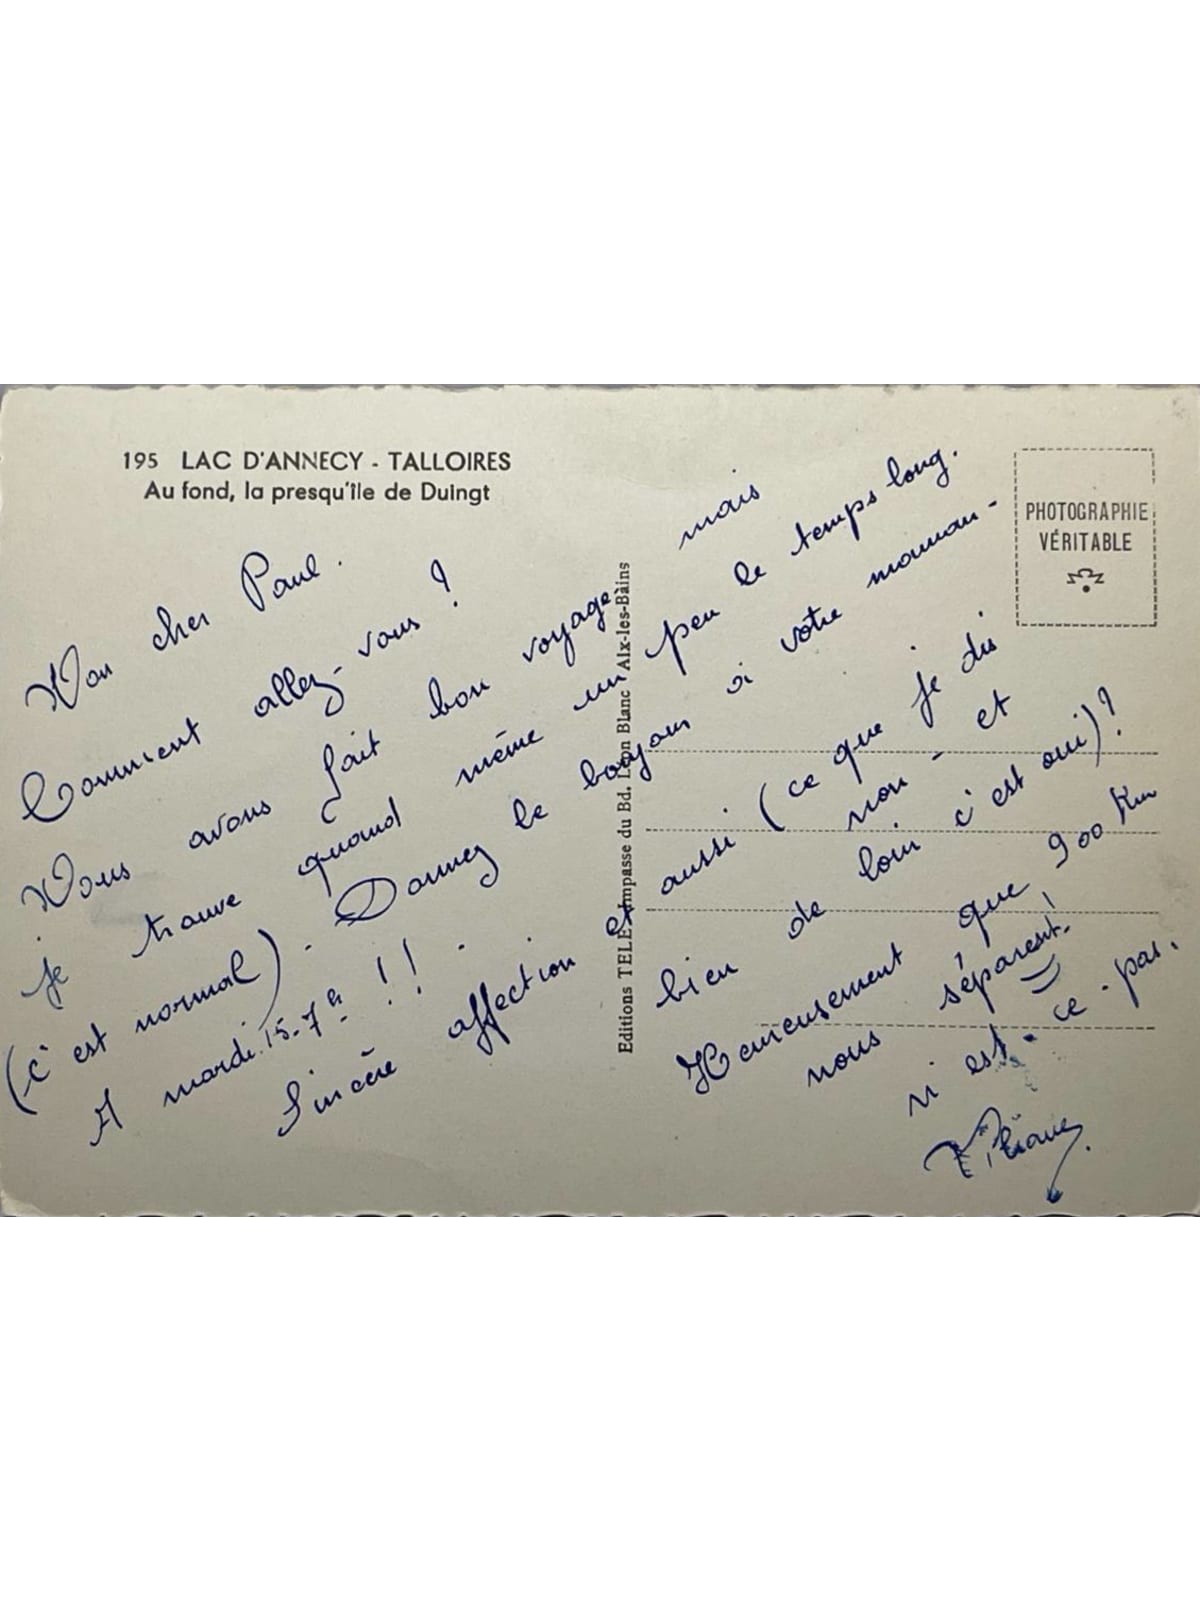 195 LAC D'ANNECY - TALLOIRES
Au fond, la presqu'île de Duingt
PHOTOGRAPHIE
VÉRITABLE
Editions TELE Impasse du Bd. Lion Blanc Aix-les-Bains
Mon cher Paul.
Comment allez-vous ?
Nous avons fait bon voyage mais
je trouve quand même un peu le temps long.
(c'est normal). Donnez le bonjour à votre maman -
A mardi 15-7h !!
Sincère affection et aussi (ce que je dis
non - et
bien de loin c'est oui) ?
Heureusement que 900 Km
nous séparent!
n'est-ce-pas.